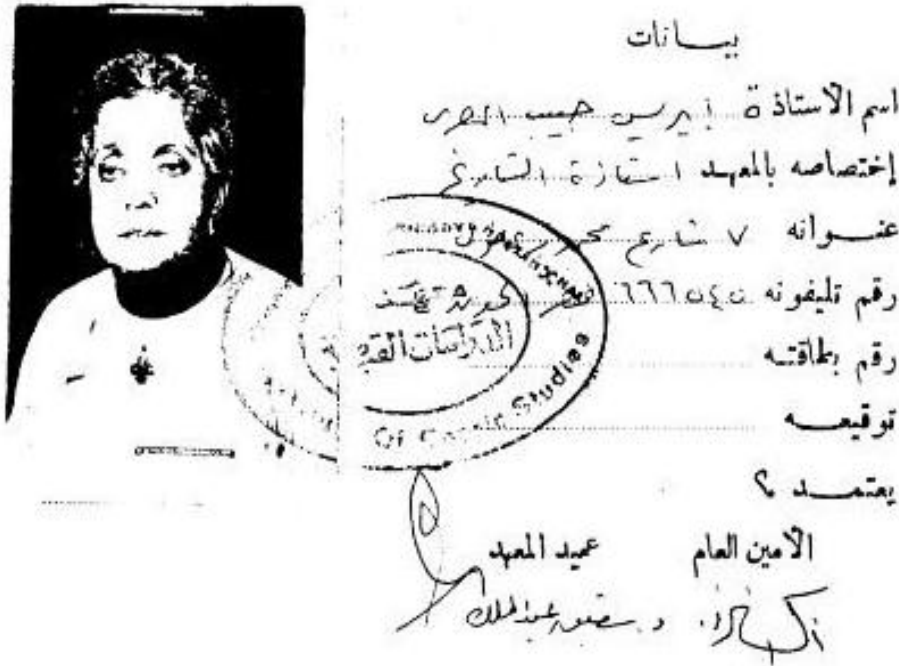 بيانات
اسم الأستاذة ايريس حبيب المصرى
إختصاصه بالمعهد استاذة التاريخ
عنوانه ٧ شارع محمد
رقم تليفونه ٦٦٦٥٤٥
رقم بطاقته
توقيعه
يعتمد ؟
الأمين العام عميد المعهد
د.
الدراسات القبطية
Of Coptic Studies